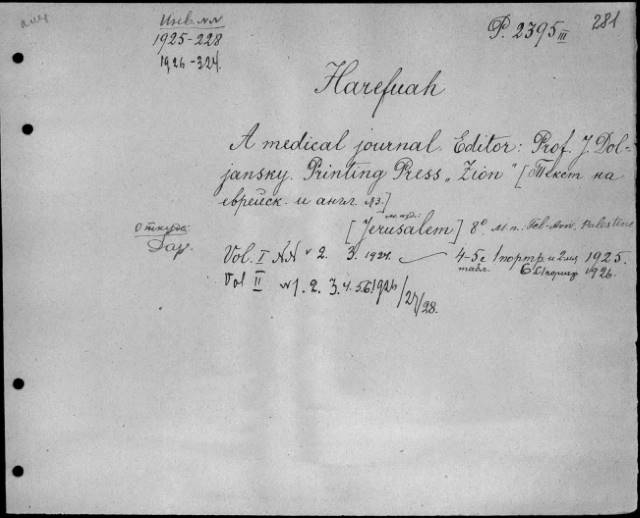 Инв. №№
1925-228
1926-324.
P. 2395 III
281
Harefuah
A medical journal. Editor: Prof. J. Dol-
jansky. Printing Press „Zion" [Текст на
еврейск. и англ. яз.]
[Jerusalem] 8° Tel-Aviv, Palestine
Откуда:
Дар.
Vol. I №№ 2. 3. 1924. 4-5 с 1 портр. и 2 илл. 1925.
табл. 6 1926.
Vol II № 1. 2. 3. 4. 5.6. 1926
/27/28.